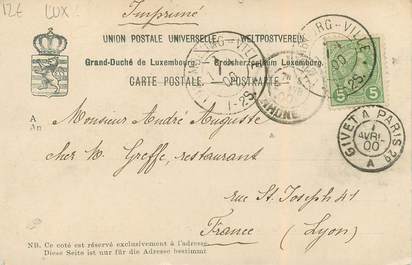 12€ LUX
Imprimé
UNION POSTALE UNIVERSELLE. WELTPOSTVEREIN.
Grand-Duché de Luxembourg. Grossherzogtum Luxemburg.
CARTE POSTALE. POSTKARTE.
LUXEMBOURG-VILLE
1-2S
RHONE
LUXEMBOURG-VILLE
00
1-2S
5 5
GIVET A PARIS 29
1
AVRIL
00
A
A
An
Monsieur André Auguste
chez M. Greffe, restaurant
rue St. Joseph 41
France (Lyon)
NB. Ce coté est réservé exclusivement à l'adresse.
Diese Seite ist nur für die Adresse bestimmt